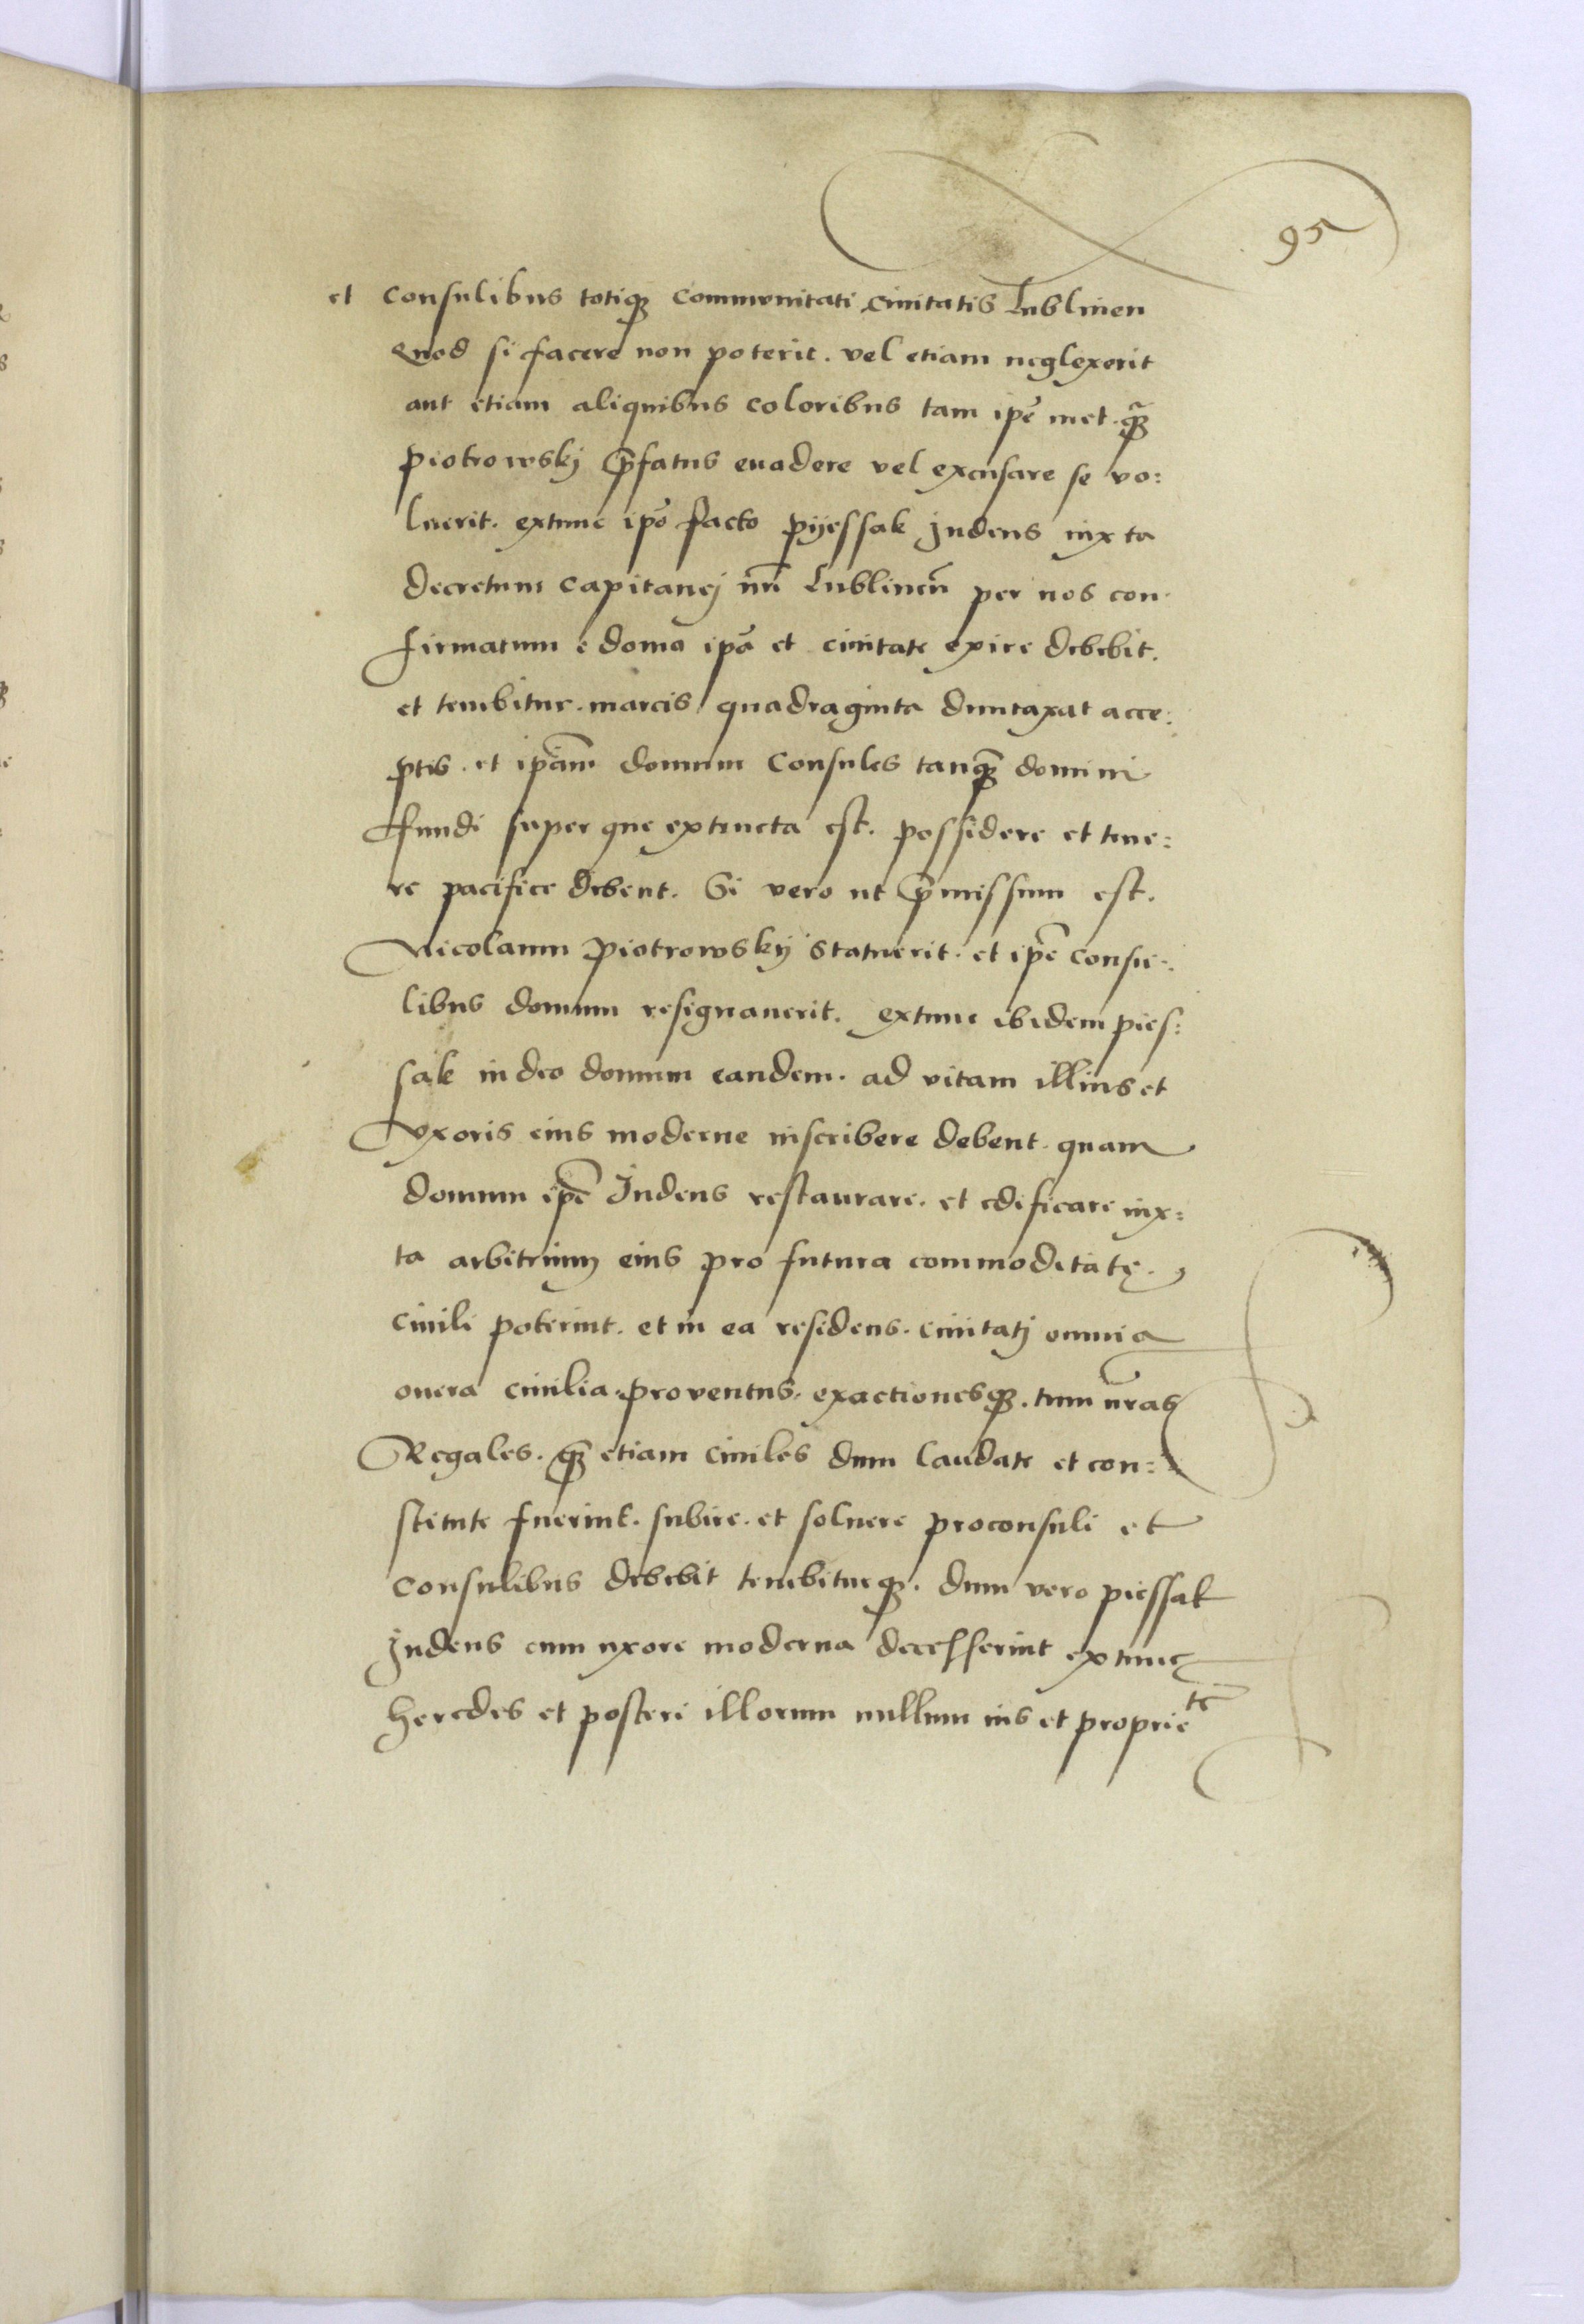 95
et consulibus totiqꝫ communitati ciuitatis Lublinen
Quod si facere non poterit. vel etiam neglexerit
aut etiam aliquibus coloribus tam ip̄e met. qꝫ̃
piotrowskj p̄fatus euadere vel excusare se vo:
luerit. extunc ip̄o facto pijessak Judeus iuxta
decretum capitanej nr̄i Lublineñ per nos con
firmatum e domo ip̄a et ciuitate exire debebit.
et tenebitur. marcis quadraginta duntaxat acce:
ptis. et ip̄am domum consules tanqꝫ̃ domini
ffundi super que extructa est. possidere et tene:
re pacifice debent. Si vero ut p̄missum est.
Nicolaum Piotrowskij statuerit. et ip̄e consu:
libus domum resignauerit. extunc ibidem pies:
sak iudeo domum eandem. ad vitam illius et
vxoris eius moderne inscribere debent. quam
domum ip̄e Judeus restaurare. et edificare iux:
ta arbitrium eius pro futura commoditatę.
ciuili poterint. et in ea residens. ciuitatj omnia
onera ciuilia. proventus. exactionesqꝫ. tum nr̄as
Regales. qꝫ̃ etiam ciuiles dum laudate et con:
stitute fuerint. subire. et soluere proconsuli et
consulibus debebit tenebiturqꝫ. dum vero piessak
Judeus cum uxore moderna decesserint extunc
heredes et posteri illorum nullum ius et proprieᵗᵉ̄